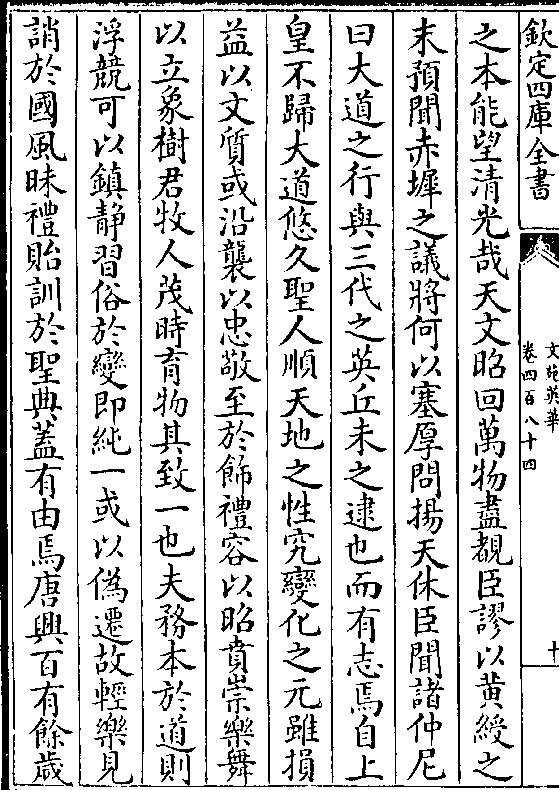 欽定四庫全書
文苑英華
卷四百八十四
十
之本能望清光哉天文昭回萬物盡覩臣謬以黄綬之
末預聞赤墀之議將何以塞厚問揚天休臣聞諸仲尼
曰大道之行與三代之英丘未之逮也而有志焉自上
皇不歸大道悠久聖人順天地之性究變化之元雖損
益以文質或沿襲以忠敬至於飾禮容以昭賁崇樂舞
以立象樹君牧人茂時育物其致一也夫務本於道則
浮競可以鎮静習俗於變即純一或以偽遷故輕樂見
誚於國風昧禮貽訓於聖典蓋有由焉唐興百有餘歲